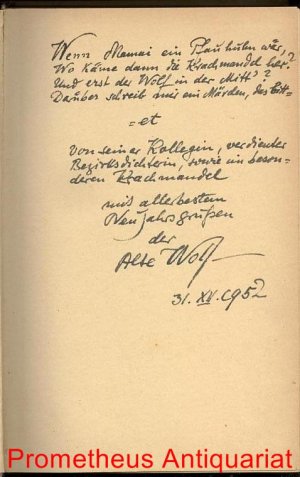 Wenn Mamai ein Blauhuhn wär,
Wo käme dann die Krachmandel her?
Und erst der Wolf in der Mitt'?
Darüber schreib mir ein Märchen, das bitt=
=et
von seiner Kollegin, verdienter
Bezirksdichterin, sowie um beson-
deren Krachmandel
mit allerbestem
Neujahrsgrüßen
der
Alte Wolf
31. XII. 1952
Prometheus Antiquariat